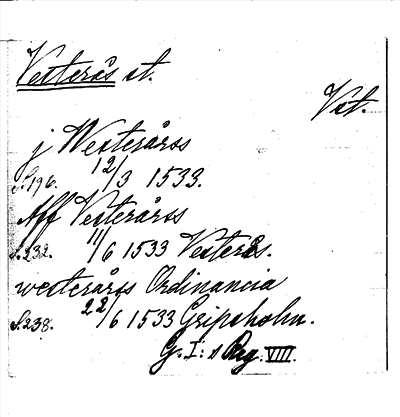 Vesterås st.
Vst.
j Westerårss
S. 196. 12/3 1533.
Aff Vesterårss
S. 232. 11/6 1533 Vesterås.
westerårss Ordinancia
S. 238. 22/6 1533 Gripsholm.
G. I:s Reg. VIII.